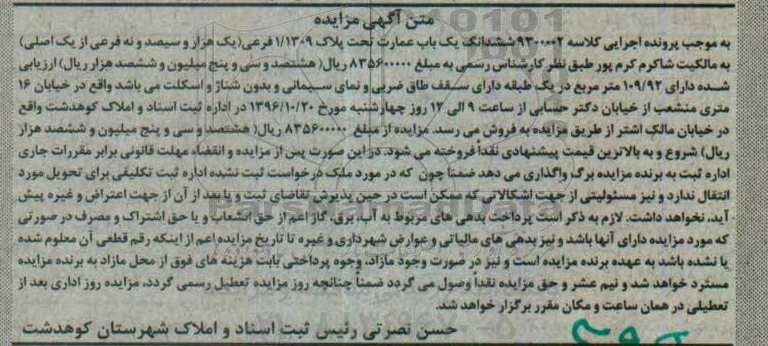 متن آگهی مزایده
به موجب پرونده اجرایی کلاسه ۹۳۰۰۰۰۲ ششدانگ یک باب عمارت تحت پلاک ۱/۱۳۰۹ فرعی(یک هزار و سیصد و نه فرعی از یک اصلی)
به مالکیت شاکرم کرم پور طبق نظر کارشناس رسمی به مبلغ ۸۳۵۶۰۰۰۰۰ ریال( هشتصد و سی و پنج میلیون و ششصد هزار ریال) ارزیابی
شده دارای ۱۰۹/۹۲ متر مربع در یک طبقه دارای سقف طاق ضربی و نمای سیمانی و بدون شناژ و اسکلت می باشد واقع در خیابان ۱۶
متری منشعب از خیابان دکتر حسابی از ساعت ۹ الی ۱۲ روز چهارشنبه مورخ ۱۳۹۶/۱۰/۲۰ در اداره ثبت اسناد و املاک کوهدشت واقع
در خیابان مالک اشتر از طریق مزایده به فروش می رسد. مزایده از مبلغ ۸۳۵۶۰۰۰۰۰ ریال( هشتصد و سی و پنج میلیون و ششصد هزار
ریال) شروع و به بالاترین قیمت پیشنهادی نقداً فروخته می شود. در این صورت پس از مزایده و انقضاء مهلت قانونی برابر مقررات جاری
اداره ثبت به برنده مزایده برگ واگذاری می دهد ضمناً چون که در مورد ملک درخواست ثبت نشده اداره ثبت تکلیفی برای تحویل مورد
انتقال ندارد و نیز مسئولیتی از جهت اشکالاتی که ممکن است در حین پذیرش تقاضای ثبت و یا بعد از آن از جهت اعتراض و غیره پیش
آید، نخواهد داشت. لازم به ذکر است پرداخت بدهی های مربوط به آب، برق، گاز اعم از حق انشعاب و یا حق اشتراک و مصرف در صورتی
که مورد مزایده دارای آنها باشد و نیز بدهی های مالیاتی و عوارض شهرداری و غیره تا تاریخ مزایده اعم از اینکه رقم قطعی آن معلوم شده
یا نشده باشد به عهده برنده مزایده است و نیز در صورت وجود مازاد، وجوه پرداختی بابت هزینه های فوق از محل مازاد به برنده مزایده
مسترد خواهد شد و نیم عشر و حق مزایده نقداً وصول می گردد ضمناً چنانچه روز مزایده تعطیل رسمی گردد، مزایده روز اداری بعد از
تعطیلی در همان ساعت و مکان مقرر برگزار خواهد شد.
حسن نصرتی رئیس ثبت اسناد و املاک شهرستان کوهدشت